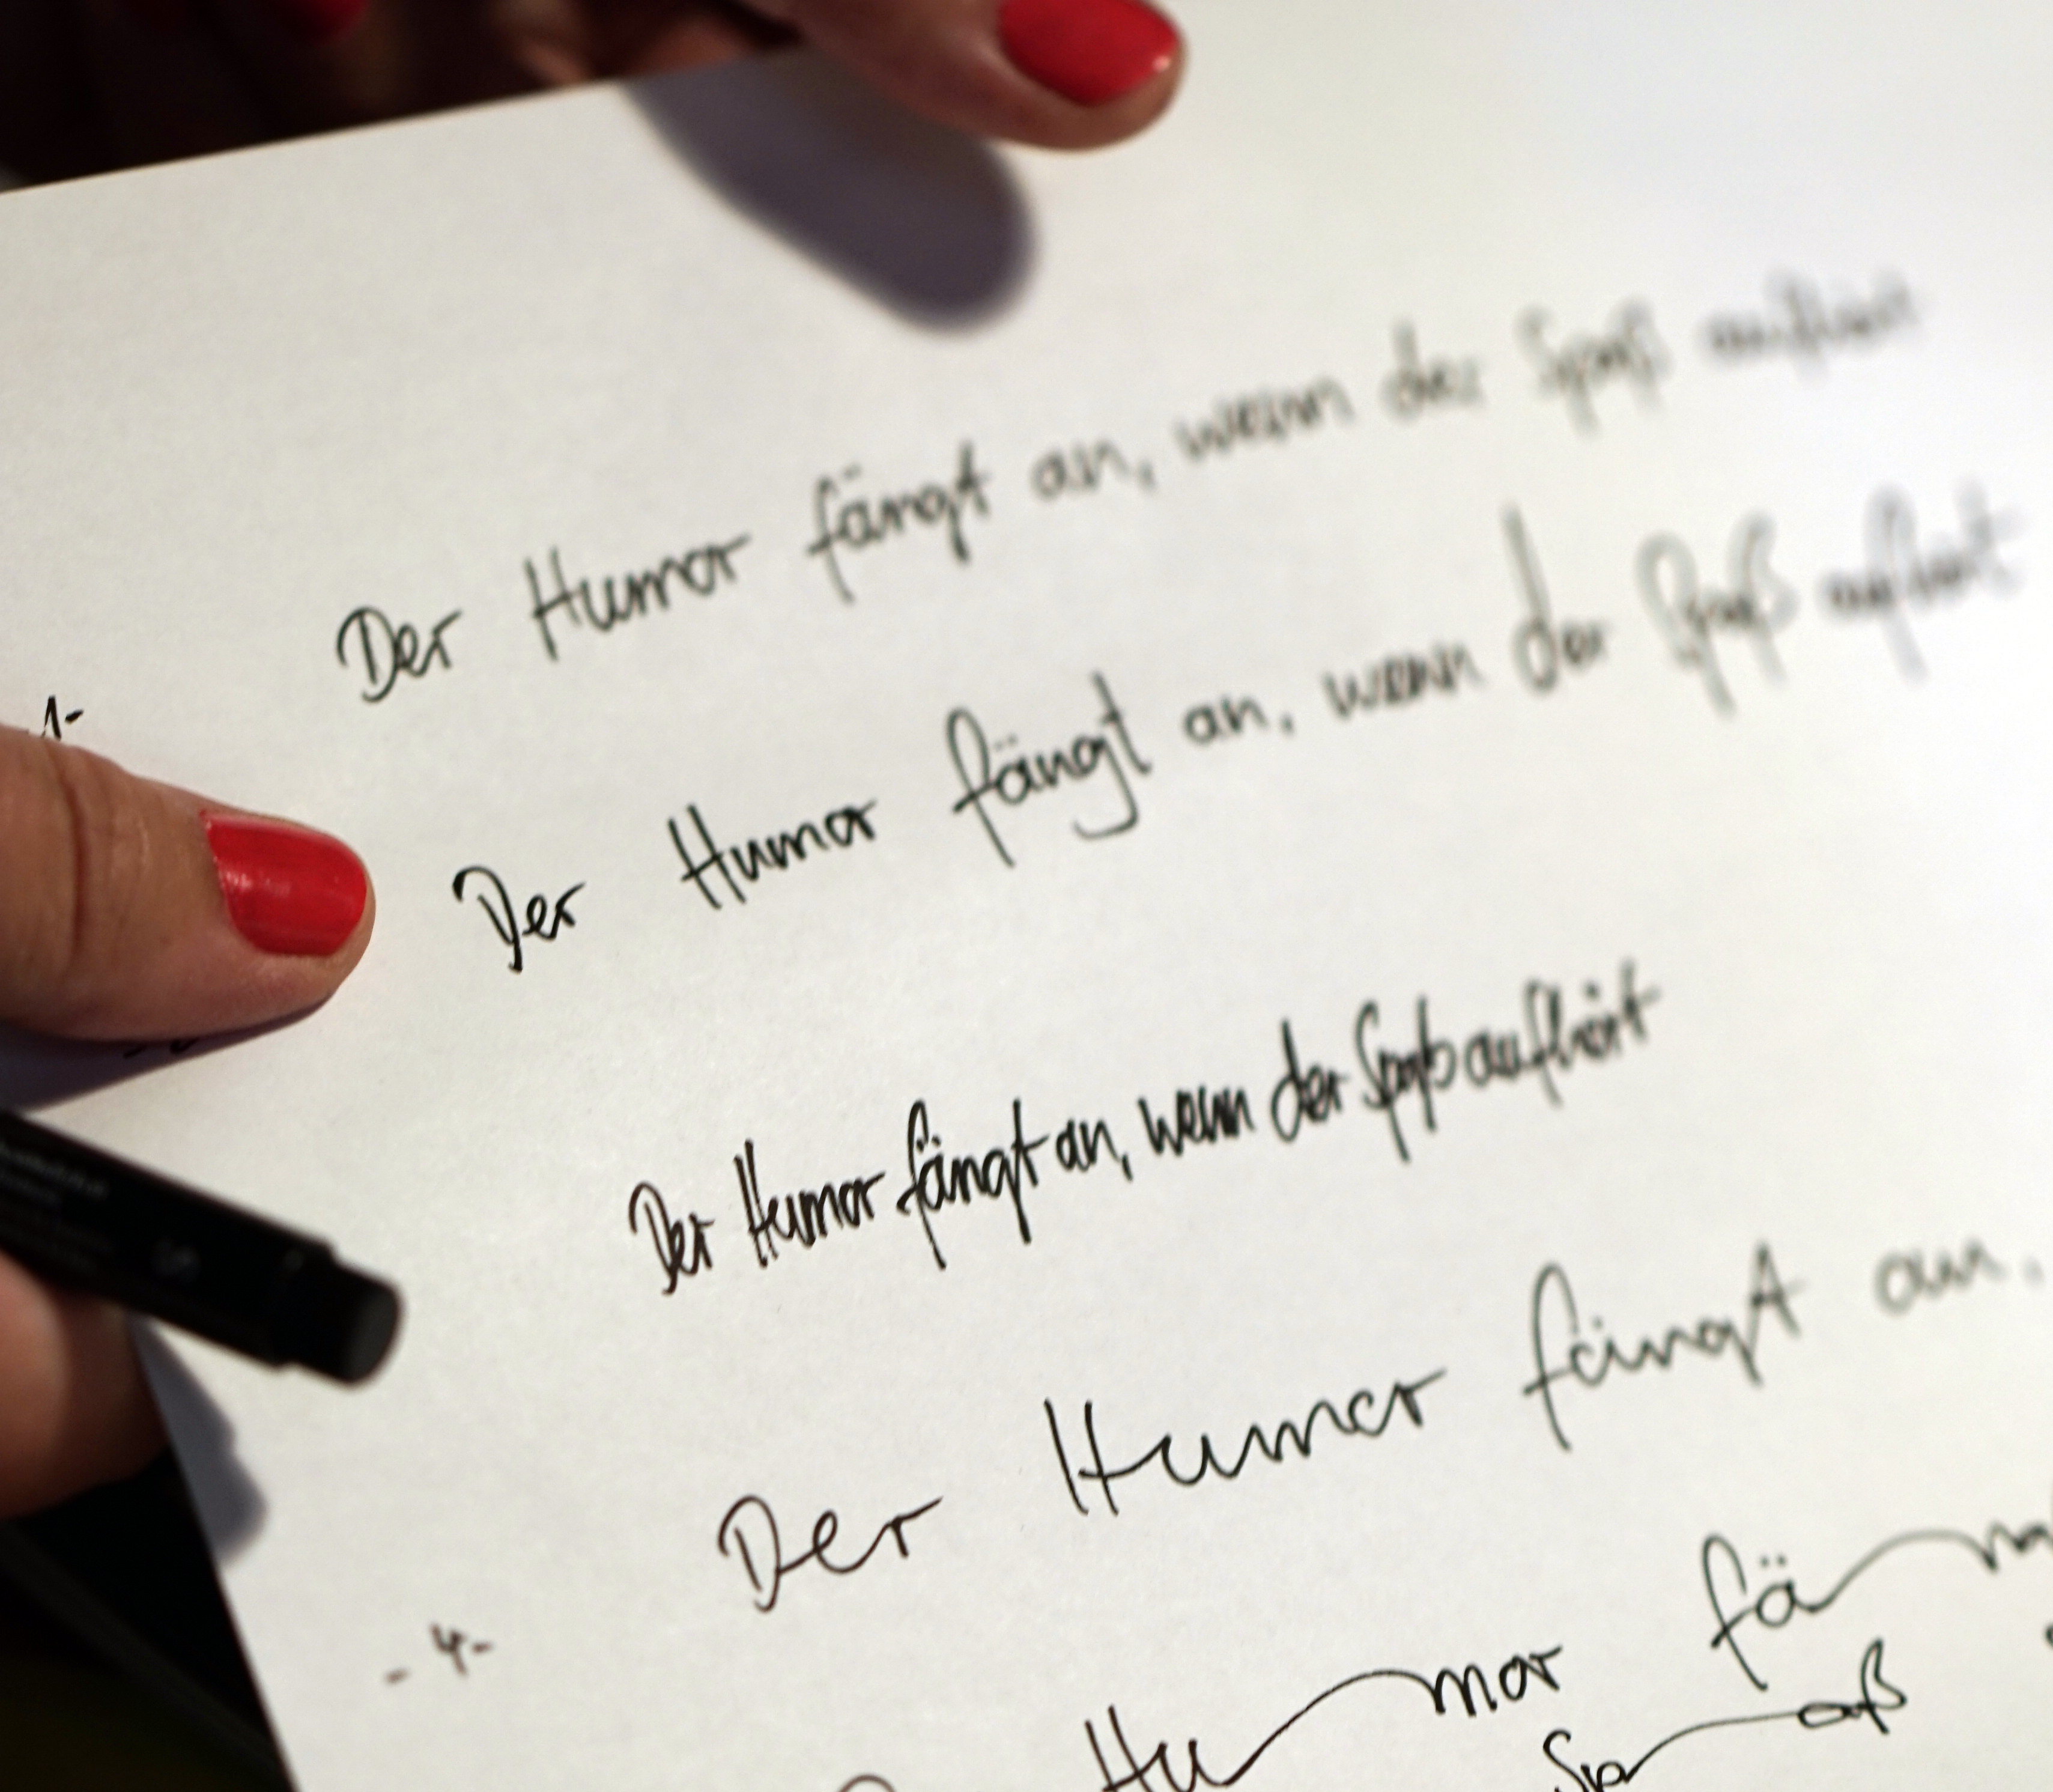 -1-
Der Humor fängt an, wenn der Spaß aufhört
Der Humor fängt an, wenn der Spaß aufhört.
Der Humor fängt an, wenn der Spaß aufhört
Der Humor fängt an,
-4-
Humor fäng
Spaß